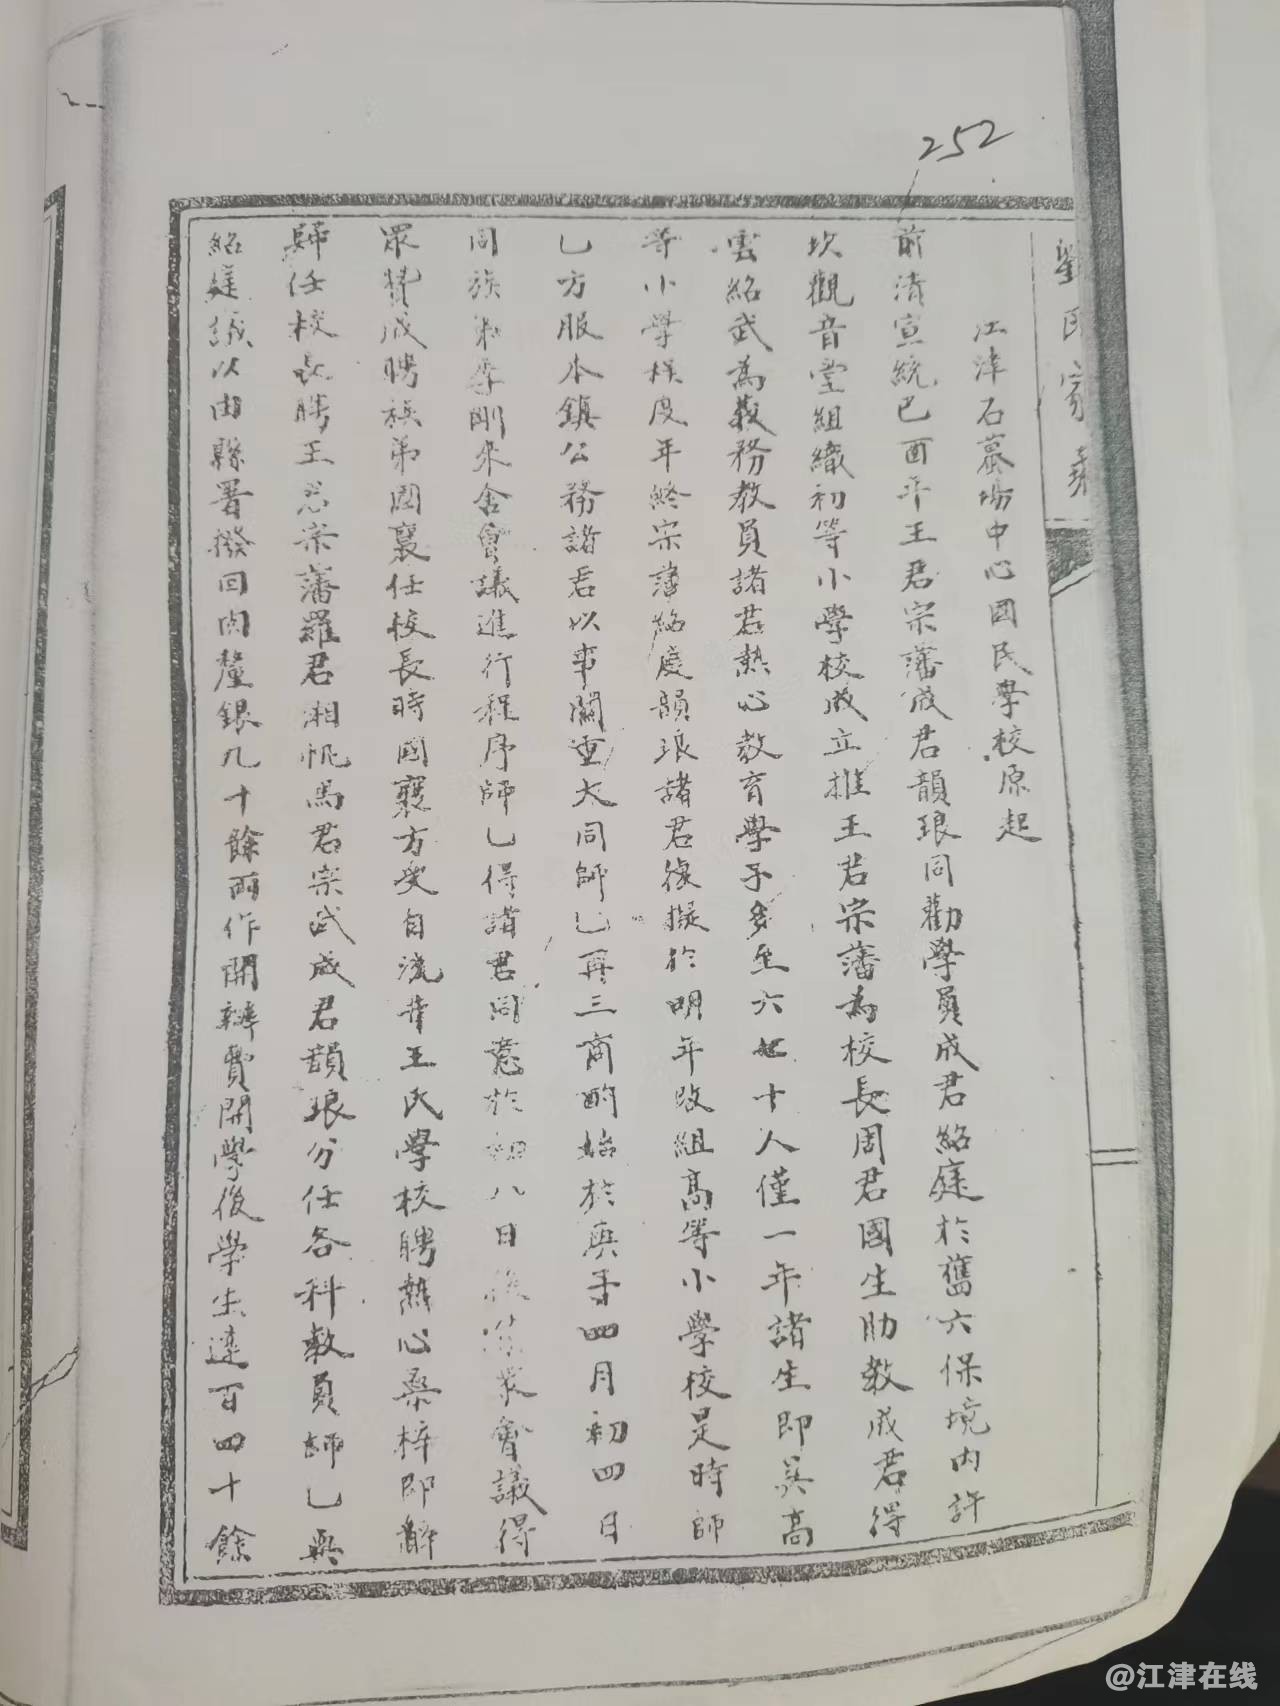 252
劉氏家乘
江津石蟇場中心國民學校原起
前清宣統己酉年王君宗藩成君韻琅同勸學員成君紹庭於舊六保境内許
坎觀音堂組織初等小學校成立推王君宗藩為校長周君國生助教成君得
雲紹武為義務教員諸君熱心教育學子多至六七十人僅一年諸生即具高
等小學程度年終宗藩紹庭韻琅諸君復擬於明年改組高等小學校是時師
乙方服本鎮公務諸君以事關重大同師乙再三商酌始於庚子四月初四日
同族弟季剛來舍會議進行程序師乙得諸君同意於初八日後眾會議得
眾贊成聘族弟國襄任校長時國襄方受自流井王氏學校聘熱心桑梓即辭
歸任校長聘王君宗藩羅君湘帆馬君宗武成君韻琅分任各科教員師乙與
紹庭議以由縣署撥回肉釐銀九十餘兩作開辦費開學後學生達百四十餘
@江津在线